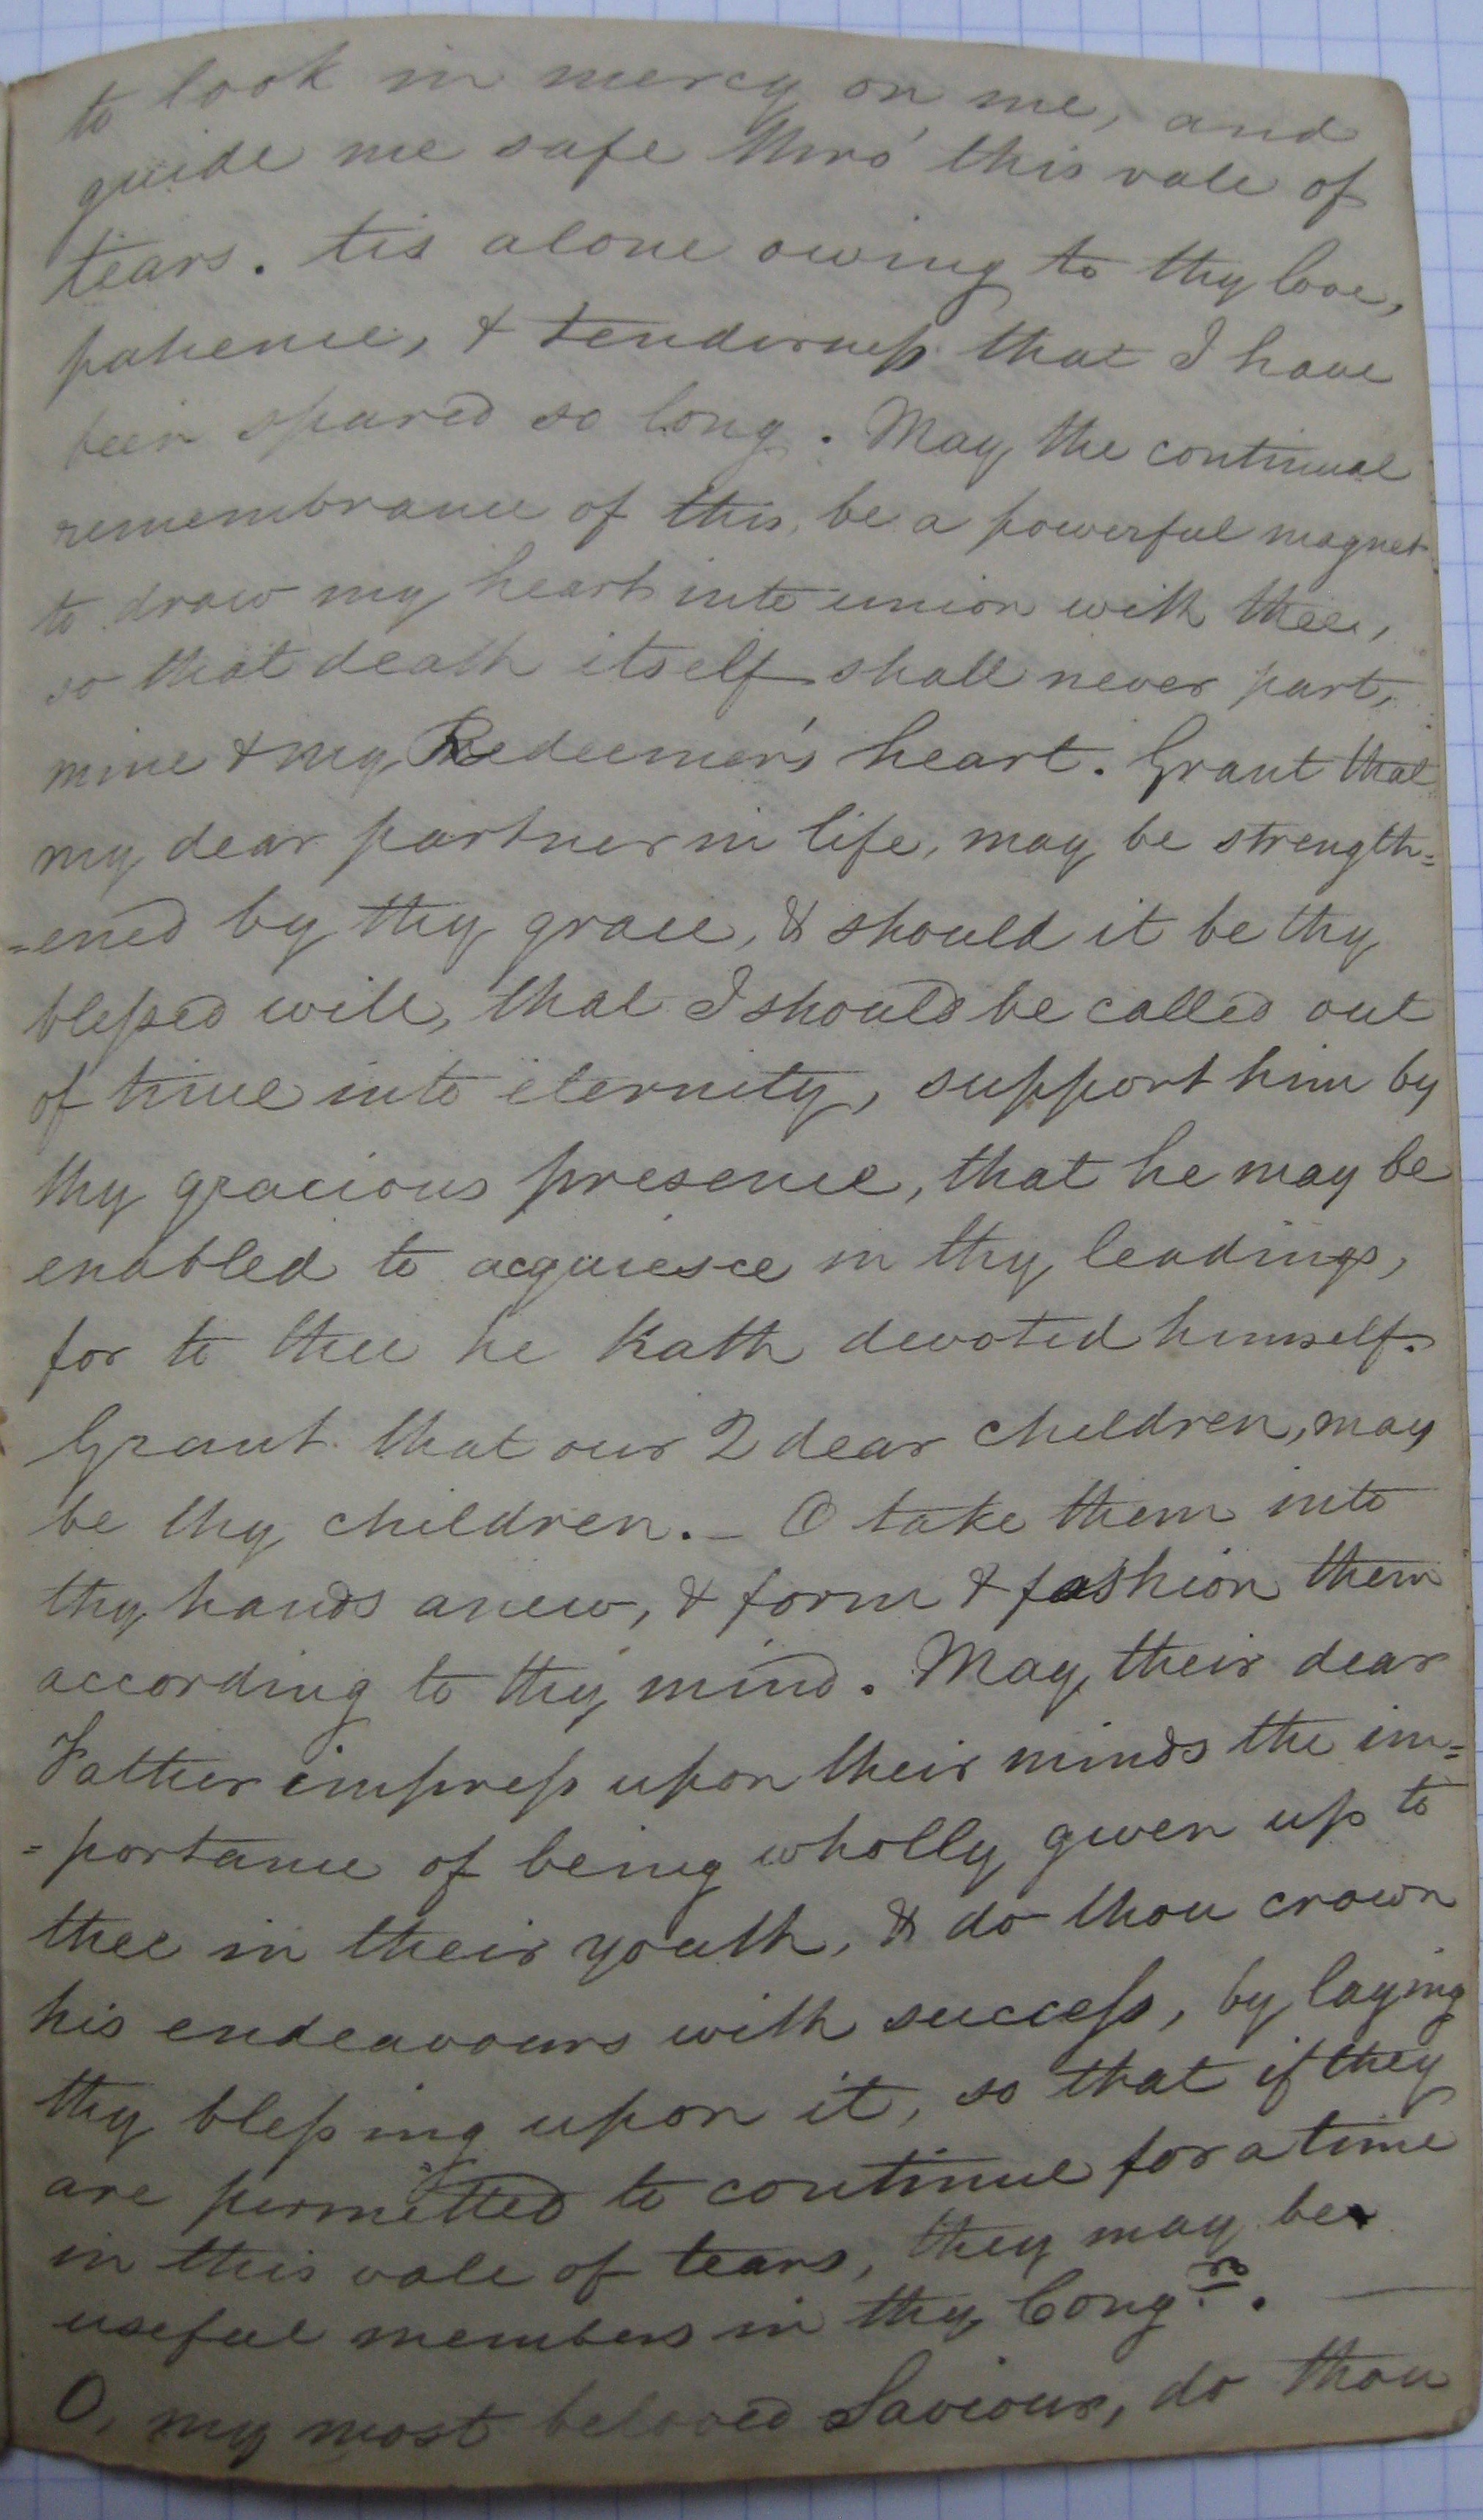 to look in mercy on me, and
guide me safe thro' this vale of
tears. tis alone owing to thy love,
patience, & tenderness that I have
been spared so long. May the continual
remembrance of this, be a powerful magnet
to draw my heart into union with thee,
so that death itself shall never part,
mine & my Redeemer's heart. Grant that
my dear partner in life, may be strength=
=ened by thy grace, & should it be thy
blessed will, that I should be called out
of time into eternity, support him by
thy gracious presence, that he may be
enabled to acquiesce in thy leadings,
for to thee he hath devoted himself.
Grant that our 2 dear children, may
be thy children. _ O take them into
thy hands anew, & form & fashion them
according to thy mind. May their dear
Father impress upon their minds the im=
=portance of being wholly given up to
thee in their youth, & do thou crown
his endeavours with success, by laying
thy blessing upon it, so that if they
are permitted to continue for a time
in this vale of tears, they may be
useful members in thy Congn. —
O, my most beloved Saviour, do thou